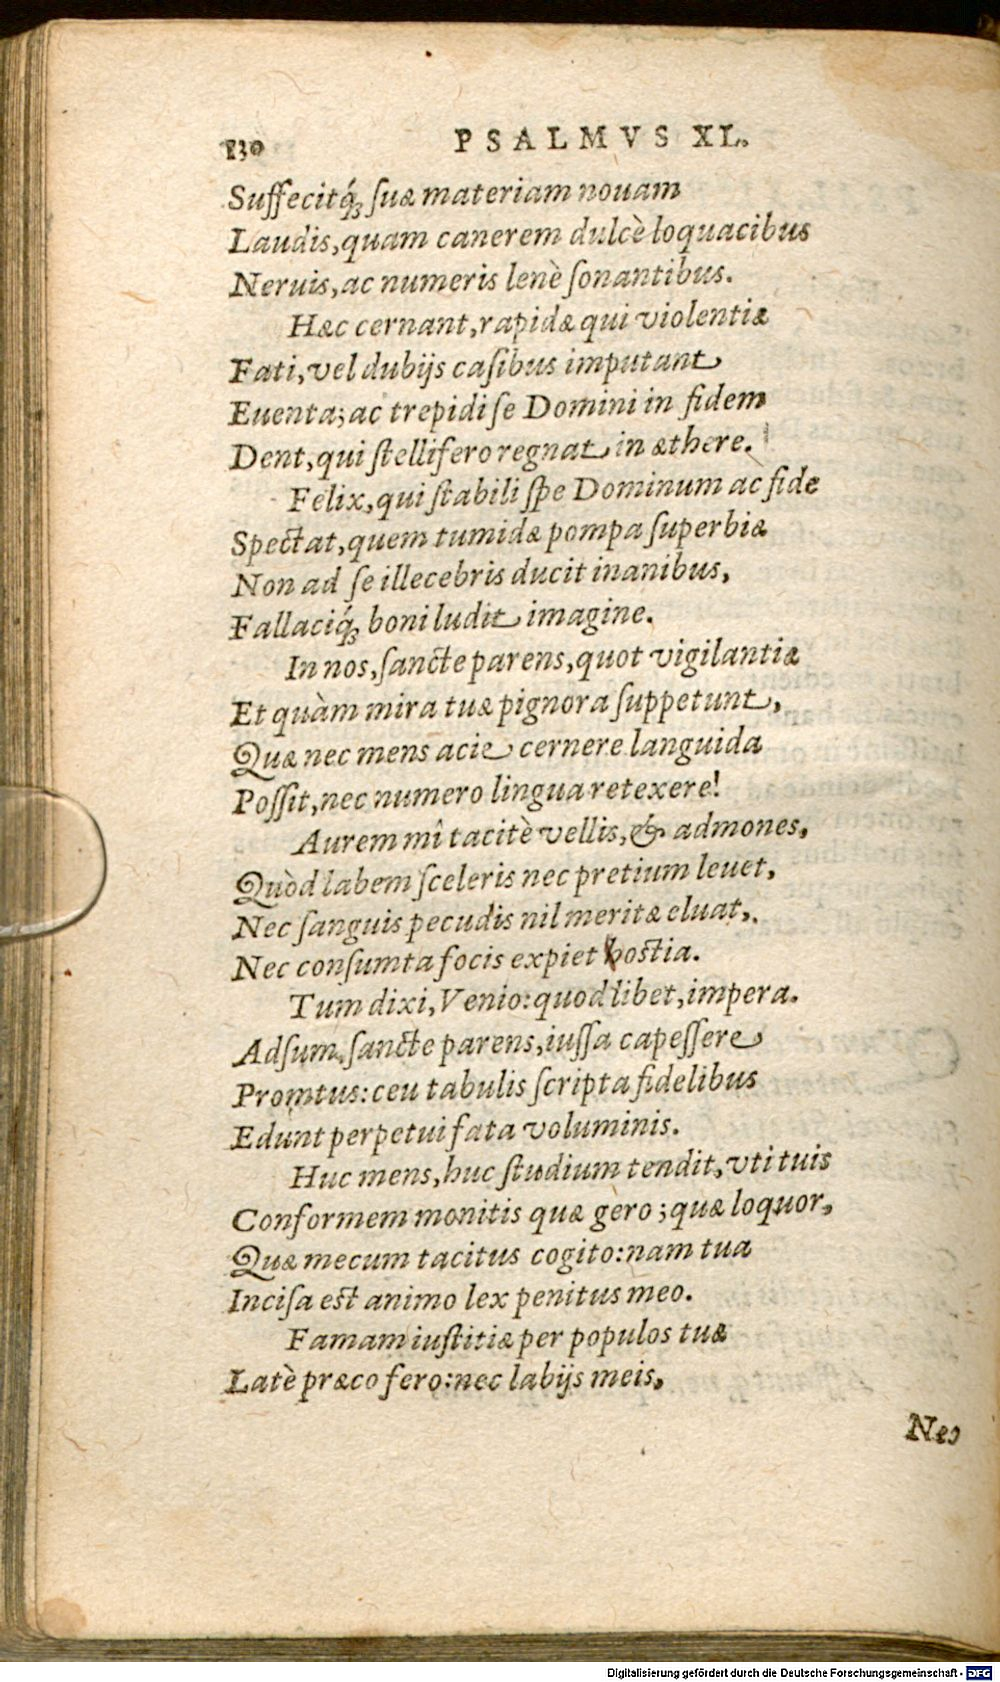 130 PSALMVS XL.
Suffecitq́; ſuæ materiam nouam
Laudis, quam canerem dulcè loquacibus
Neruis, ac numeris lenè ſonantibus.
Hæc cernant, rapidæ qui violentiæ
Fati, vel dubijs caſibus imputant
Euenta; ac trepidi ſe Domini in fidem
Dent, qui ſtellifero regnat in æthere.
Felix, qui ſtabili ſpe Dominum ac fide
Spectat, quem tumidæ pompa ſuperbiæ
Non ad ſe illecebris ducit inanibus,
Fallaciq́; boni ludit imagine.
In nos, ſancte parens, quot vigilantiæ
Et quàm mira tuæ pignora ſuppetunt,
Quæ nec mens acie cernere languida
Poſſit, nec numero lingua retexere!
Aurem mî tacitè vellis, & admones,
Quòd labem ſceleris nec pretium leuet,
Nec ſanguis pecudis nil meritæ eluat,
Nec conſumta focis expiet hostia.
Tum dixi, Venio: quod libet, impera.
Adſum, ſancte parens, iuſſa capeſſere
Promtus: ceu tabulis ſcripta fidelibus
Edunt perpetui fata voluminis.
Huc mens, huc ſtudium tendit, vti tuis
Conformem monitis quæ gero; quæ loquor,
Quæ mecum tacitus cogito: nam tua
Inciſa est animo lex penitus meo.
Famam iuſtitiæ per populos tuæ
Latè præco fero: nec labijs meis,
Nec
Digitalisierung gefördert durch die Deutsche Forschungsgemeinschaft - DFG